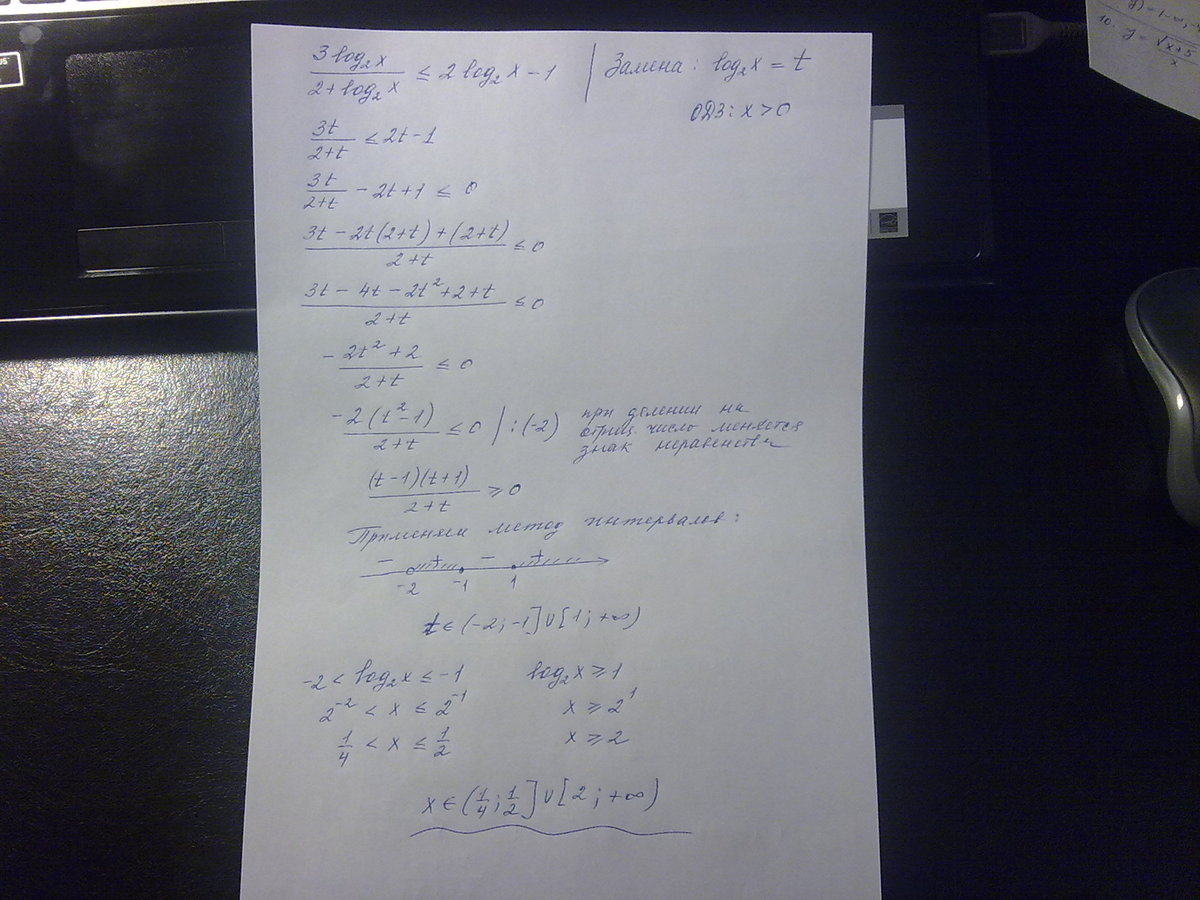 3 log₂x / (2 + log₂x) ≤ 2 log₂x - 1 | Замена: log₂x = t
ОДЗ: x > 0
3t / (2+t) ≤ 2t - 1
3t / (2+t) - 2t + 1 ≤ 0
(3t - 2t(2+t) + (2+t)) / (2+t) ≤ 0
(3t - 4t - 2t² + 2 + t) / (2+t) ≤ 0
- (2t² + 2) / (2+t) ≤ 0
-2(t² - 1) / (2+t) ≤ 0 | :(-2) при делении на
отриц. число меняется
знак неравенства
(t-1)(t+1) / (2+t) ≥ 0
Применяем метод интервалов:
- + - +
-2 -1 1
t ∈ (-2; -1] ∪ [1; +∞)
-2 < log₂x ≤ -1 log₂x ≥ 1
2⁻² < x ≤ 2⁻¹ x ≥ 2¹
1/4 < x ≤ 1/2 x ≥ 2
x ∈ (1/4; 1/2] ∪ [2; +∞)
10. y = √(x+5) / x